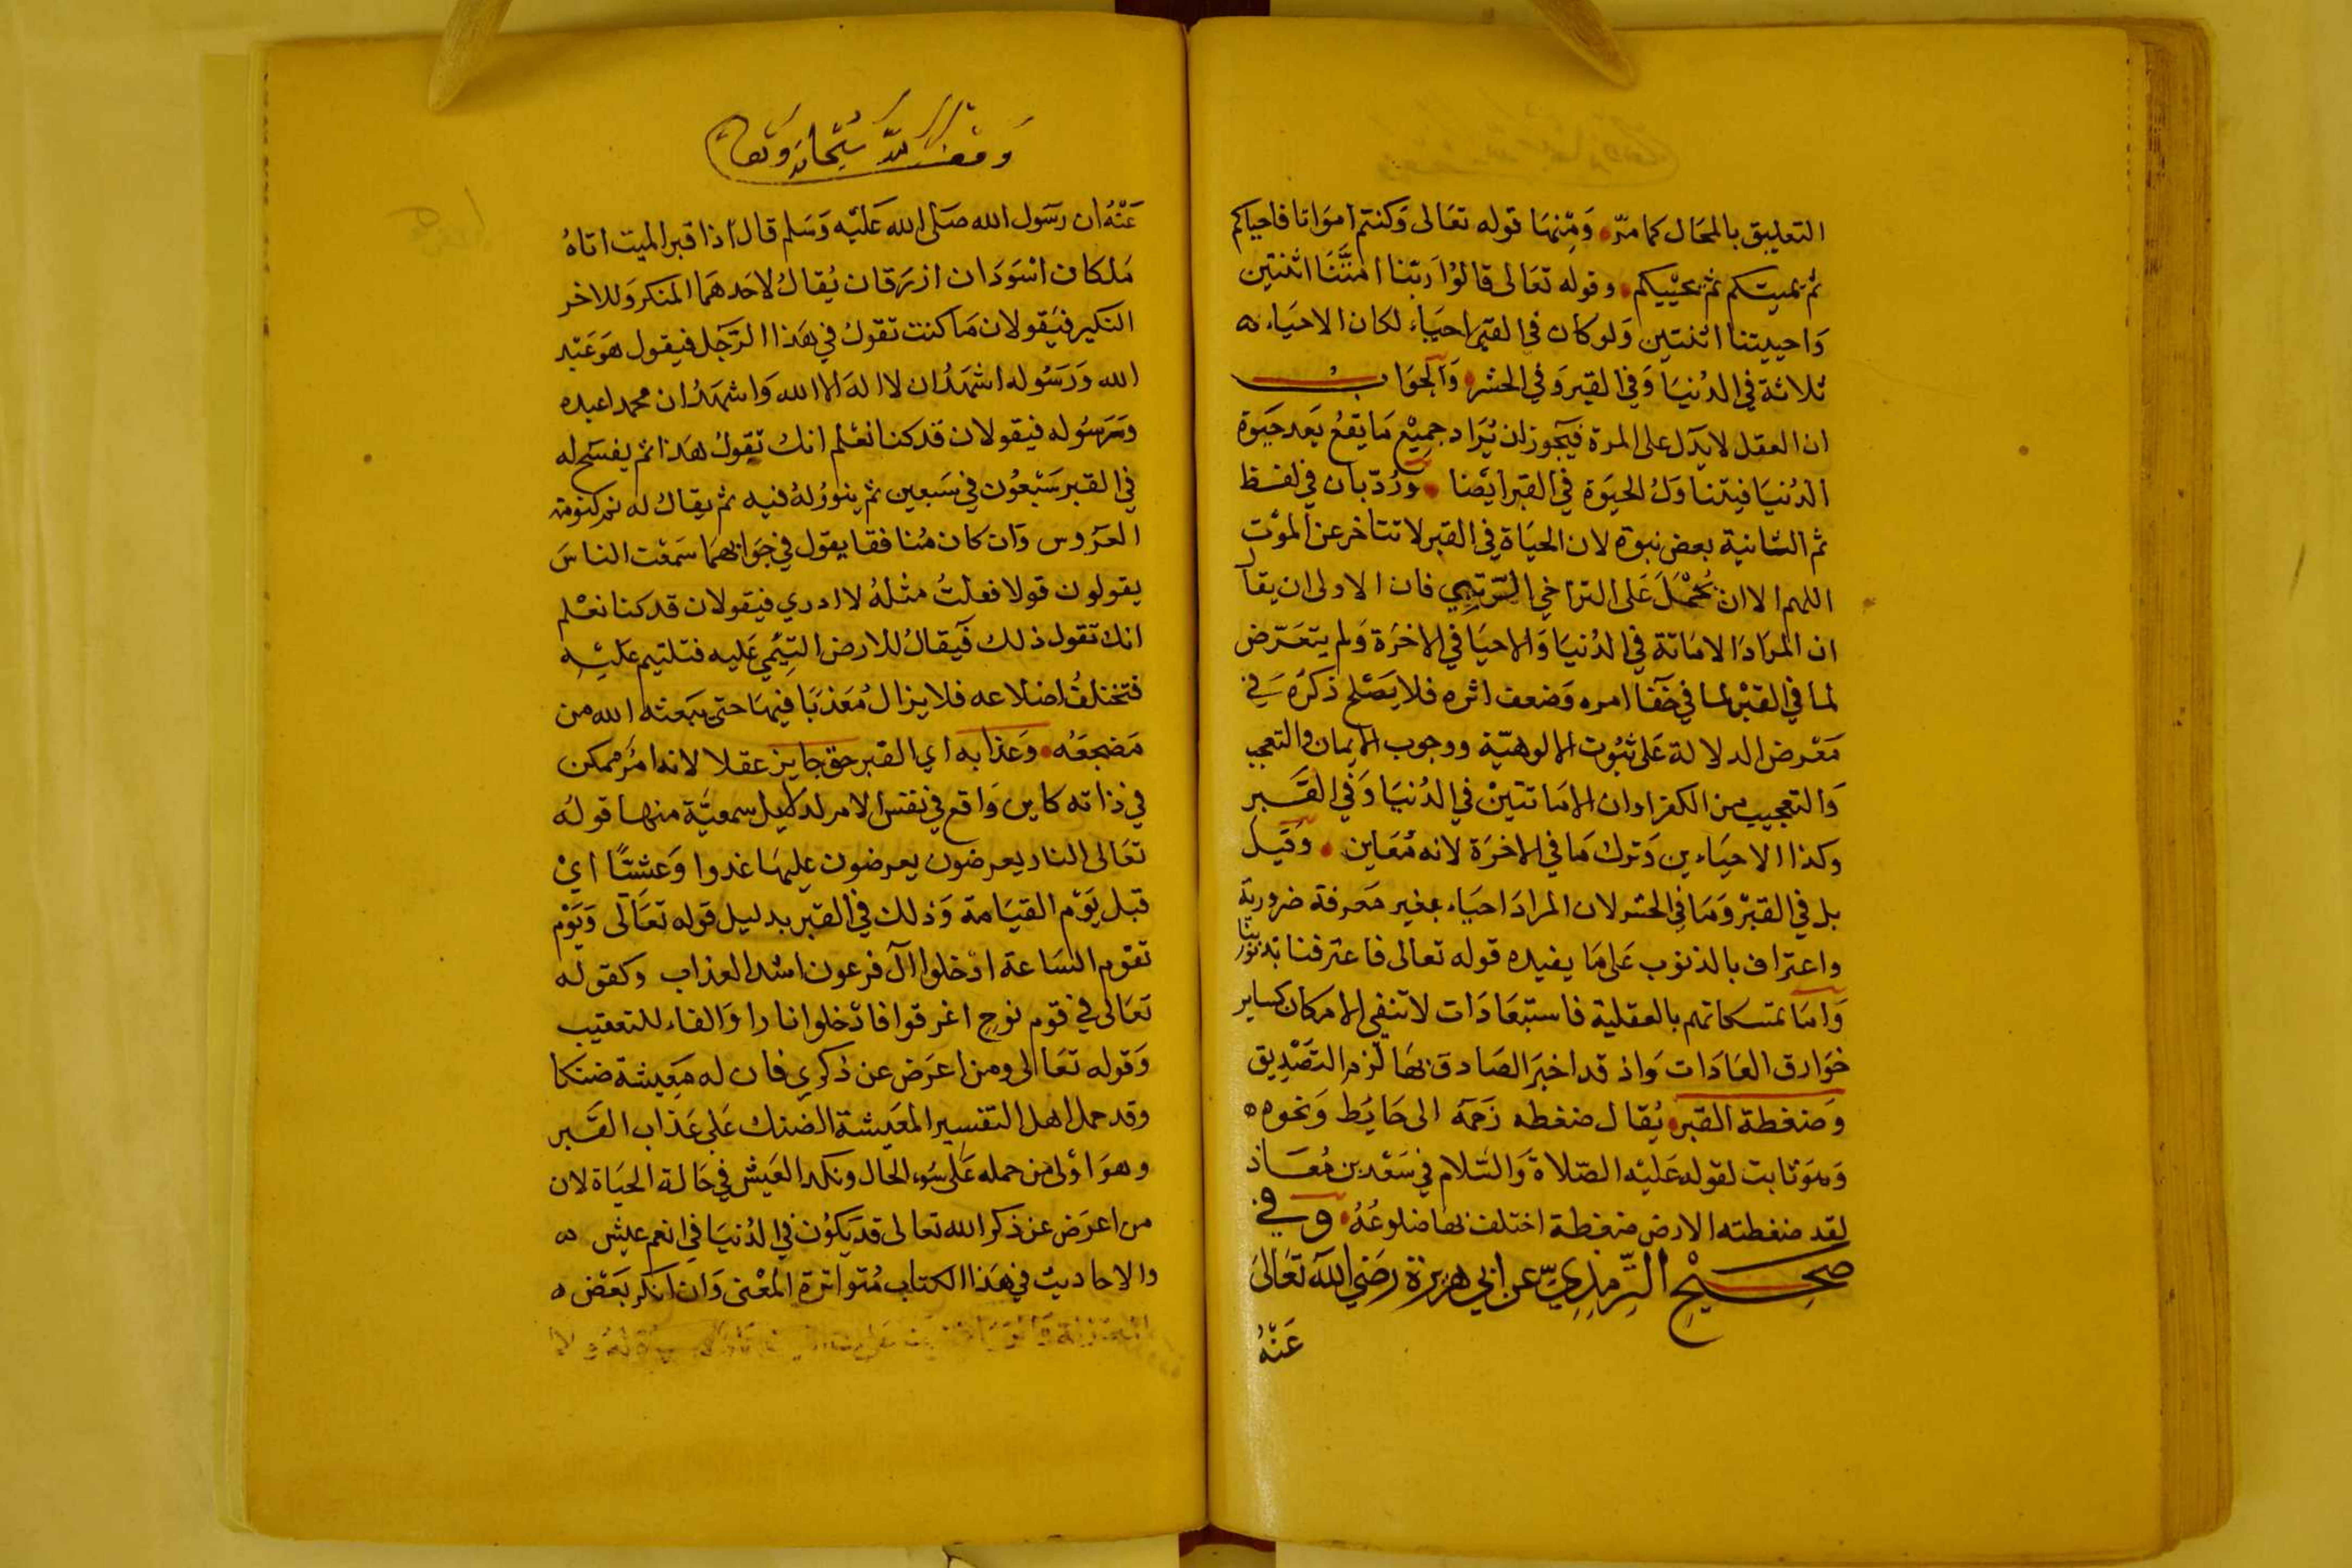 التعليق بالمحال كما مرّ، وَمِنْهَا قوله تعَالى وَكنتم اموَاتا فاحياكم
ثم يميتكم ثم يحييكم، وقوله تعَالى قالوُا رَبّنا امتَّنَا اثنتين
وَاحييتنا اثنتين وَلو كان في القبر احيَاء لكان الاحيَاء ه
ثلاثة في الدُنيَا وَفي القبر وَفي الحشر، وَالجوَاب
ان العقل لا يدَل على المرة فيَجوز ان يُرَاد جميْع مَا يقعُ بَعد حيَوة
الدُنيَا فيتناوَلُ الحيَوة في القبر ايضا، وَرُدّ بان في لفظ
ثم الثانية بعض نبوة لان الحيَاة في القبر لا تتاخر عن الموْت
اللهم الا ان يُحْمَلَ عَلى التراخي الرتبي فان الاولى ان يقال
ان المرَادَ الامَاتة في الدُنيَا وَالاحيَا في الاخرَة وَلم يتعَرّض
لما في القبْر لما في خَفا امره وَضعف اثره فلا يَصْلح ذكرُه في
مَعْرض الدلالة عَلى ثبُوت الالوهيّة ووجوب الايمان والتعجب
وَالتعجيب من الكفر اوان الامَاتتيْن في الدُنيَا وَفي القَبر
وكذا الاحيَاءين وَترك مَا في الاخرَة لانه مُعَاين، وَقيل
بل في القبْر وَمَا في الحشر لان المرادَ احيَاء بغير مَعرفة ضرورية
واعتراف بالذنوب عَلى مَا يفيده قوله تعالى فاعترفنا بذنوبنا
وَامّا تمتسكاتهم بالعقلية فاستبْعَادَات لا تنفي الامكان كساير
خوَارق العَادَات وَاذ قد اخبرَ الصَادق بهَا لزم التصْديق
وَضغطة القبر، يُقال ضغطه زَحمَه الى حَايُط وَنحوه ه
وَهوَ ثابت لقوله عَليْه الصّلاة وَالسّلام في سَعْد بن مُعَاذ
لقد ضغطته الارض ضغطة اختلفت بها ضلوعُهُ، وفي
صحيْح الترمذيّ عن ابي هريرة رَضيَ اللّه تعَالى
عَنْهُ
وَقف للّه سُبْحانه وَتعالى
عَنْهُ ان رَسَول الله صَلى الله عَليْه وَسَلم قال اذا قبر الميت اتاهُ
مَلكان اسْوَدَان ازرَقان يُقالُ لاحَدهمَا المنكر وَللاخر
النكير فيَقولان مَا كنت تقولُ في هَذا الرَّجَل فيقول هوَ عَبْد
الله وَرَسُوله اشهَدُ ان لا اله الا الله وَاشهَدُ ان محمدا عبده
وَرَسُوله فيقولان قد كنا نعْلم انك تقولُ هَذا ثم يفسَح له
في القبر سَبْعوُن في سَبعين ثم ينوّرُ لهُ فيه ثم يقالُ له نم كنومة
العرَوس وَان كان مُنافقا يقول في جوَابهمَا سَمعْت الناسَ
يقولون قولا فعلتُ مثلهُ لا ادري فيقولان قد كنا نعْلم
انك تقول ذلك فيَقالُ للارض التئِمي عَليه فتلتيم عَليْه
فتختلفُ اضلاعه فلا يزالُ مُعَذبًا فيهَا حتى يبَعثه الله من
مَضجعَه، وَعَذابه اي القبر حق جايز عقلا لانه امُر ممكن
في ذاته كاين وَاقع في نفس الامر لدلايل سمعيّة منها قولهُ
تعَالى النار يعرضون يعرضون عليهَا غدوا وَعشيّا ايْ
قبل يَوْم القيَامة وَذلك في القبر بدليل قوله تعَالى وَيَوْم
تقوْم السَاعة ادْخلوا آل فرعون اشد العذاب وكقوله
تعَالى في قوم نوح اغرقوا فادْخلوا نارا وَالفاء للتعقيب
وَقوله تعَالى ومن اعرَض عن ذكري فان له مَعِيشة ضنكا
وقد حمل اهل التفسير المعَيشة الضنك عَلى عَذاب القَبر
وهوَ اوْلى من حمله عَلى سَوء الحال ونكد العَيش في حَالة الحيَاة لان
من اعرَض عن ذكر الله تعالى قد يَكوُن في الدُنيَا في انعم عيش ه
والاحاديث في هَذا الكتاب مُتواترة المعْنى وَان انكر بعَض ه